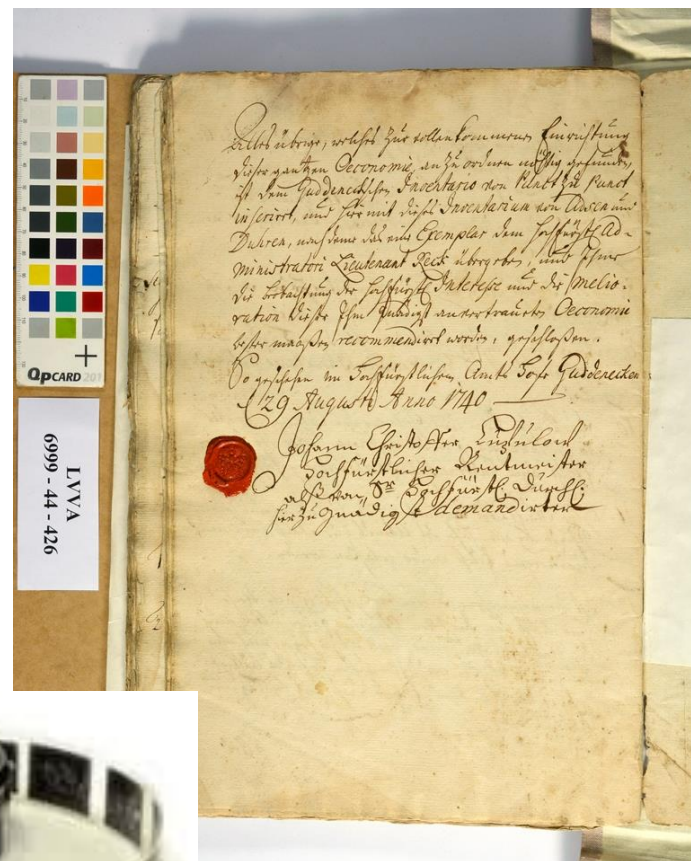 Alles übrige, welches zur vollenkommenen Einrichtung
dieser gantzen Oeconomie, an zu ordnen nöthig gefunden,
ist dem Guddeneckschen Inventario von Punct zu Punct
inseriret, und hiermit dieses Inventarium von Adsen und
Duhren, nachdeme das ein Exemplar dem Hochfürstl Ad-
ministratori Lieutenant Reck übergeben, und Ihme
die beobachtung des Hochfürstl Interesse und die melio-
ration dieser Ihm Gnädigst anvertraueten Oeconomie
bester maaßen recommendiret worden, geschloßen.
So geschehen im Hochfürstlichen Amts Hofe Guddenecken
29 Augusti Anno 1740
Johann Christoffer
Hochfürstlicher Rentmeister
alß von Sr Hochfürstl Durchl:
hierzu gnädigst demandirter
QPCARD 201
LVVA
6999 - 44 - 426